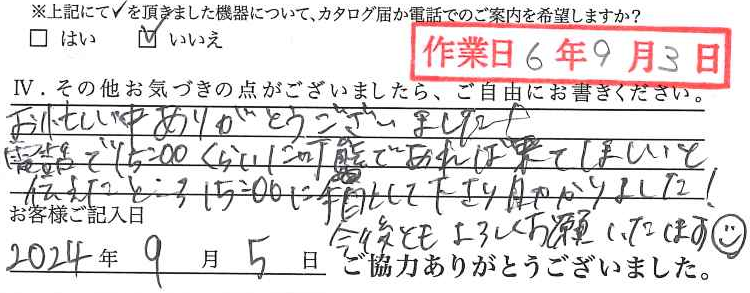 ※上記にて✓を頂きました機器について、カタログ届か電話でのご案内を希望しますか？
□ はい ☑ いいえ
作業日 6年9月3日
Ⅳ．その他お気づきの点がございましたら、ご自由にお書きください。
お忙しい中ありがとうございました！
電話で15:00くらいに可能であれば来てほしいと
伝えたところ15:00に来て下さり助かりました！
今後ともよろしくお願いいたします☺
お客様ご記入日
2024年9月5日 ご協力ありがとうございました。